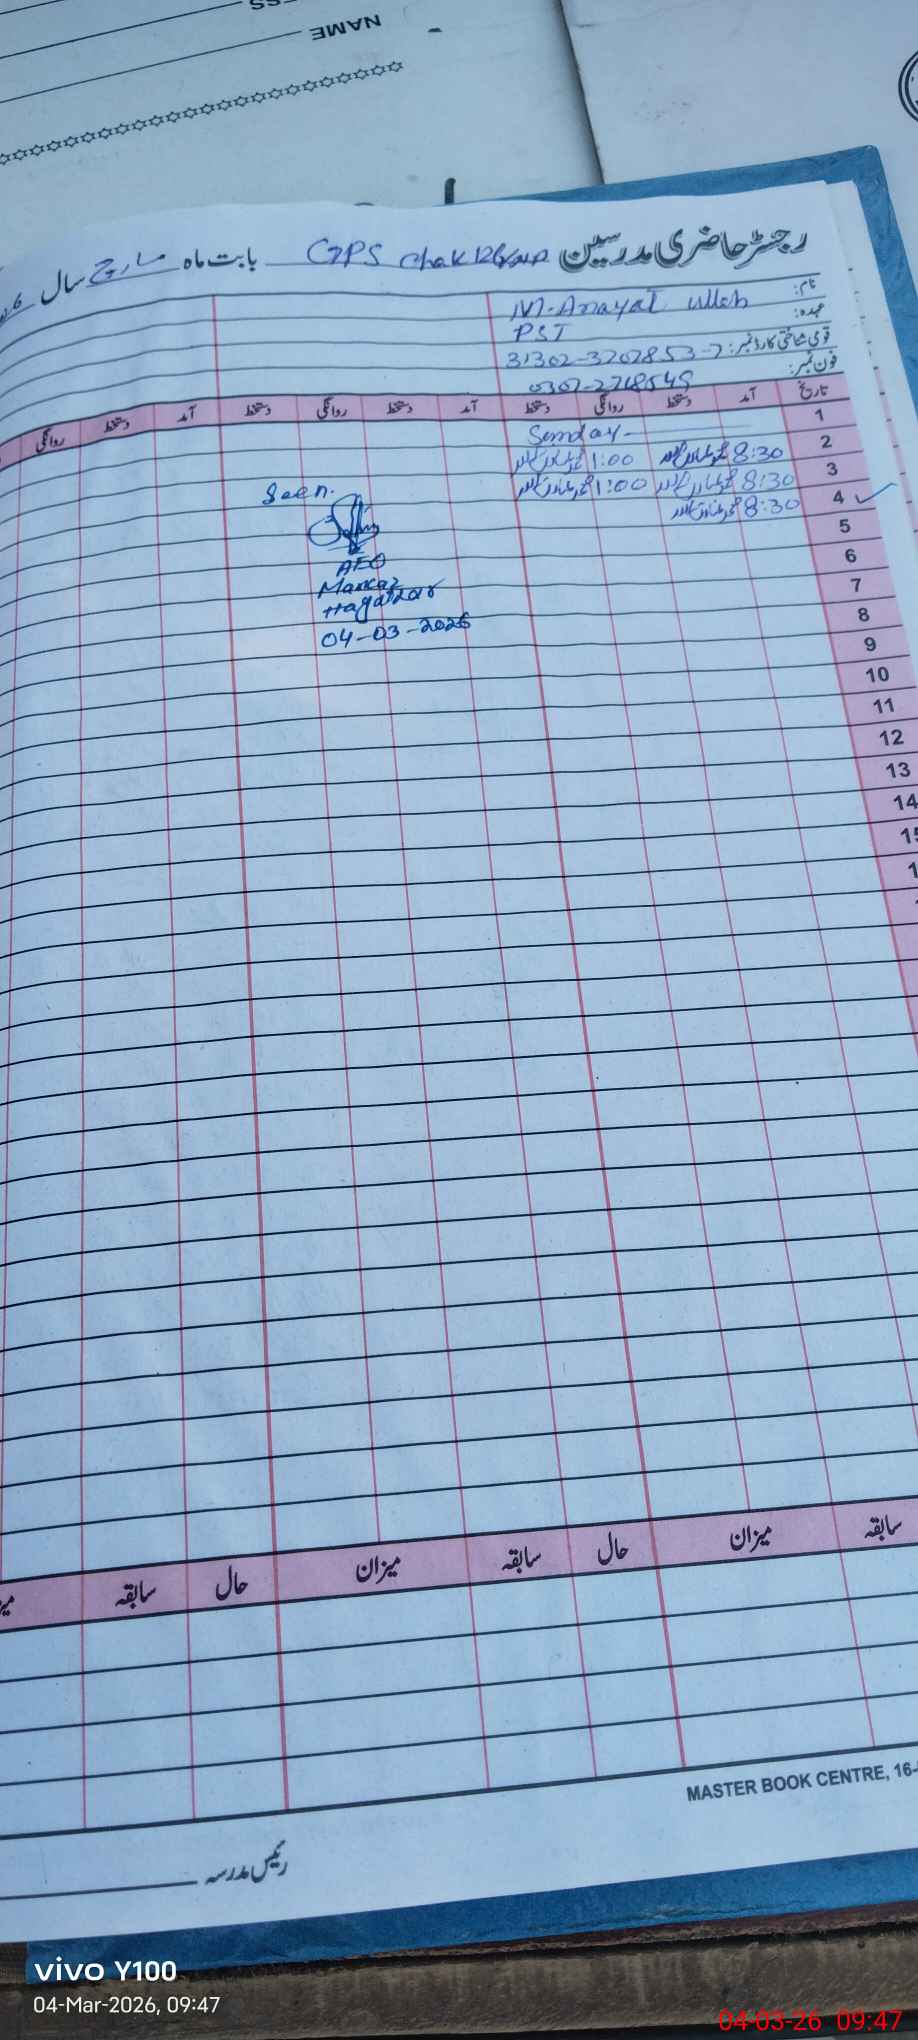 NAME
رجسٹر حاضری مدرسین GPS Chak بابت ماہ مارچ سال
نام: M. Anayat Ullah
عہدہ: PST
قومی شناختی کارڈ نمبر: 31302-3202853-7
فون نمبر: 0307-2268549
تاریخ آمد دستخط روانگی دستخط آمد دستخط روانگی دستخط آمد دستخط روانگی
1 Sunday
2 8:30 1:00
3 8:30 1:00
4 8:30
5
6
7
8
9
10
11
12
13
14
Seen.
AEO
Markaz
04-03-2026
سابقہ میزان حال سابقہ میزان حال سابقہ
MASTER BOOK CENTRE, 16-
رئیس مدرسہ
vivo Y100
04-Mar-2026, 09:47
04-03-26 09:47